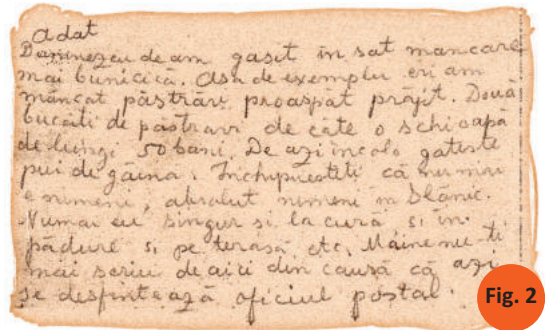 A dat
Dumnezeu de am gasit în sat mancare
mai bunicică. Asa de exemplu eri am
mâncat păstrăv proaspăt prăjit. Două
bucăti de păstravi de câte o schioapă
de lungi 50 bani. De azi incolo gateste
pui de găina. Inchipuesteti că nu mai
e nimeni, absolut nimeni in Slănic.
Numai eu singur si la cură si in
pădure si pe terasă etc. Mâine nu-ti
mai scriu de aici din causă că azi
se desfintează oficiul postal.
Fig. 2